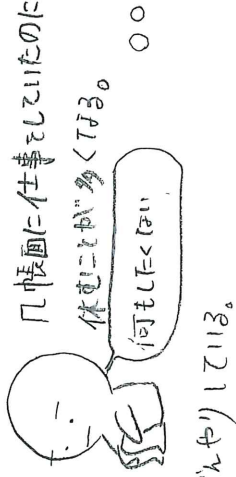 几帳面に仕事をしていたのに
休むことが多くなる。
何もしたくない
んやりしている。